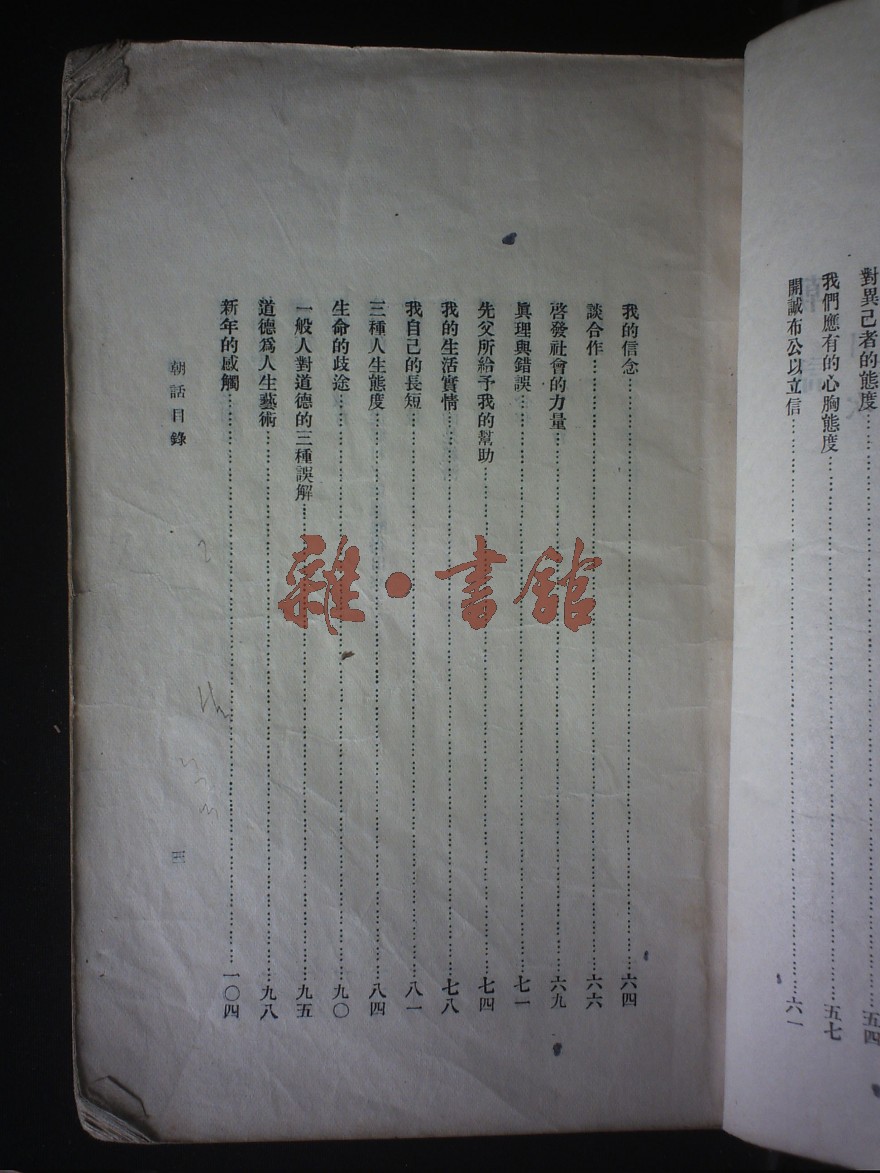 對異己者的態度……五四
我們應有的心胸態度……五七
開誠布公以立信……六一
我的信念……六四
談合作……六六
啓發社會的力量……六九
眞理與錯誤……七一
先父所給予我的幫助……七四
我的生活實情……七八
我自己的長短……八一
三種人生態度……八四
生命的歧途……九〇
一般人對道德的三種誤解……九五
道德爲人生藝術……九八
新年的感觸……一〇四
朝話目錄
四
雜·書館